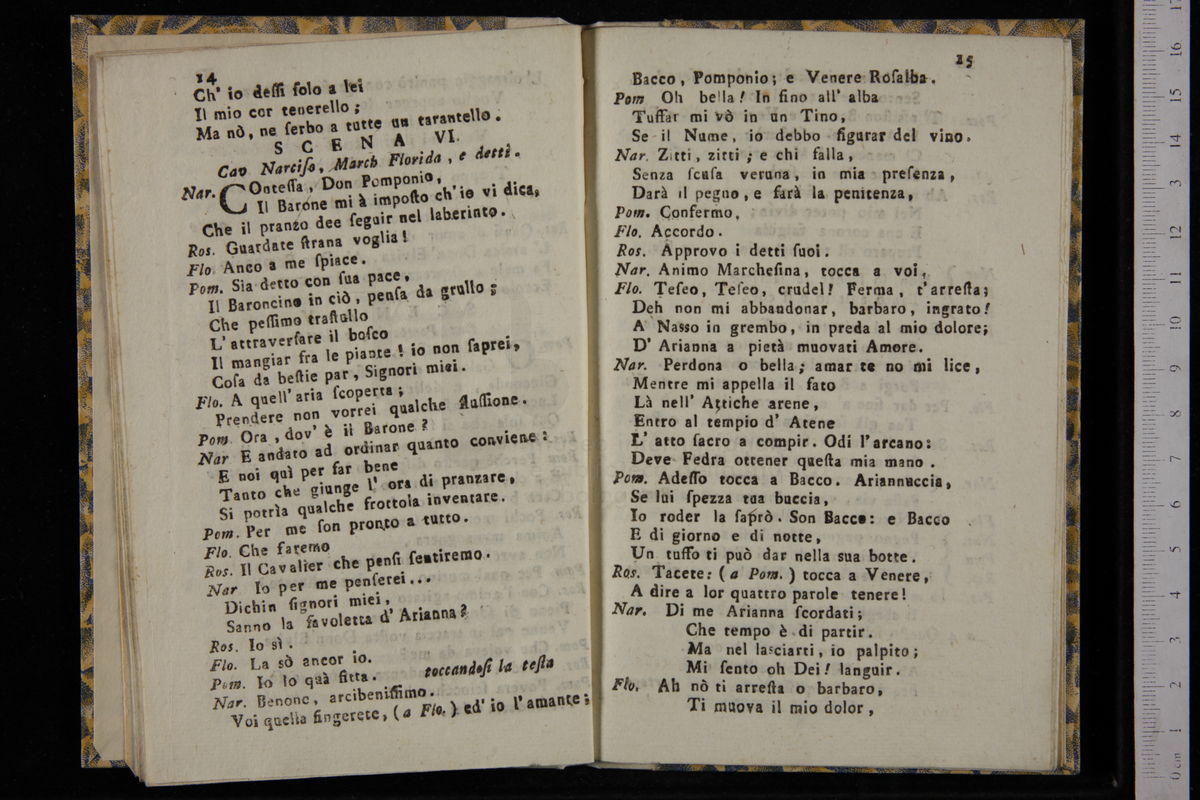 14
Ch' io deſſi ſolo a lei
Il mio cor tenerello ;
Ma nò, ne ſerbo a tutte un tarantello.
S C E N A VI.
Cav Narciſo, March Florida, e detti.
Nar. COnteſſa, Don Pomponio,
Il Barone mi à impoſto ch' io vi dica,
Che il pranzo dee ſeguir nel laberinto.
Ros. Guardate ſtrana voglia!
Flo Anco a me ſpiace.
Pom. Sia detto con ſua pace,
Il Baroncino in ciò, penſa da grullo ;
Che peſſimo traſtullo
L' attraverſare il boſco
Il mangiar fra le piante ! io non ſaprei,
Coſa da beſtie par, Signori miei.
Flo. A quell' aria ſcoperta ;
Prendere non vorrei qualche fluſſione.
Pom. Ora, dov' è il Barone ?
Nar E andato ad ordinar quanto conviene :
E noi quì per far bene
Tanto che giunge l' ora di pranzare,
Si potrìa qualche frottola inventare.
Pom. Per me ſon pronto a tutto.
Flo. Che faremo
Ros. Il Cavalier che penſi ſentiremo.
Nar Io per me penſerei...
Dichin ſignori miei,
Sanno la favoletta d' Arianna ?
Ros. Io sì.
Flo. La sò ancor io.
Pom. Io lo quà fitta. toccandoſi la teſta
Nar. Benone, arcibeniſſimo.
Voi quella fingerete, (a Flo.) ed' io l' amante ;
15
Bacco, Pomponio; e Venere Roſalba.
Pom Oh bella! In fino all' alba
Tuffar mi vò in un Tino,
Se il Nume, io debbo figurar del vino.
Nar. Zitti, zitti ; e chi falla,
Senza ſcuſa veruna, in mia preſenza,
Darà il pegno, e farà la penitenza,
Pom. Confermo,
Flo. Accordo.
Ros. Approvo i detti ſuoi.
Nar. Animo Marcheſina, tocca a voi,
Flo. Teſeo, Teſeo, crudel! Ferma, t' arreſta;
Deh non mi abbandonar, barbaro, ingrato!
A Naſſo in grembo, in preda al mio dolore;
D' Arianna a pietà muovati Amore.
Nar. Perdona o bella; amar te no mi lice,
Mentre mi appella il fato
Là nell' Attiche arene,
Entro al tempio d' Atene
L' atto ſacro a compir. Odi l' arcano:
Deve Fedra ottener queſta mia mano.
Pom. Adeſſo tocca a Bacco. Ariannuccia,
Se lui ſpezza tua buccia,
Io roder la ſaprò. Son Bacco: e Bacco
E di giorno e di notte,
Un tuffo ti può dar nella sua botte.
Ros. Tacete: (a Pom.) tocca a Venere,
A dire a lor quattro parole tenere!
Nar. Di me Arianna ſcordati;
Che tempo è di partir.
Ma nel lasciarti, io palpito;
Mi ſento oh Dei! languir.
Flo. Ah nò ti arreſta o barbaro,
Ti muova il mio dolor,